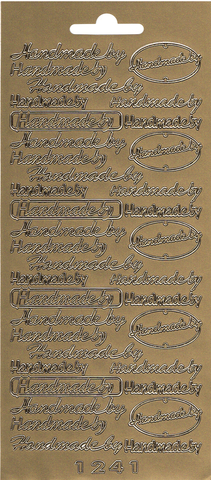 Handmade by
Handmade by Handmade by
Handmade by
Handmade by Handmade by
Handmade by Handmade by
Handmade by
Handmade by Handmade by
Handmade by
Handmade by Handmade by
Handmade by Handmade by
Handmade by
Handmade by Handmade by
Handmade by
Handmade by Handmade by
Handmade by
Handmade by Handmade by
Handmade by
Handmade by
Handmade by Handmade by
Handmade by
Handmade by Handmade by
Handmade by Handmade by
1241